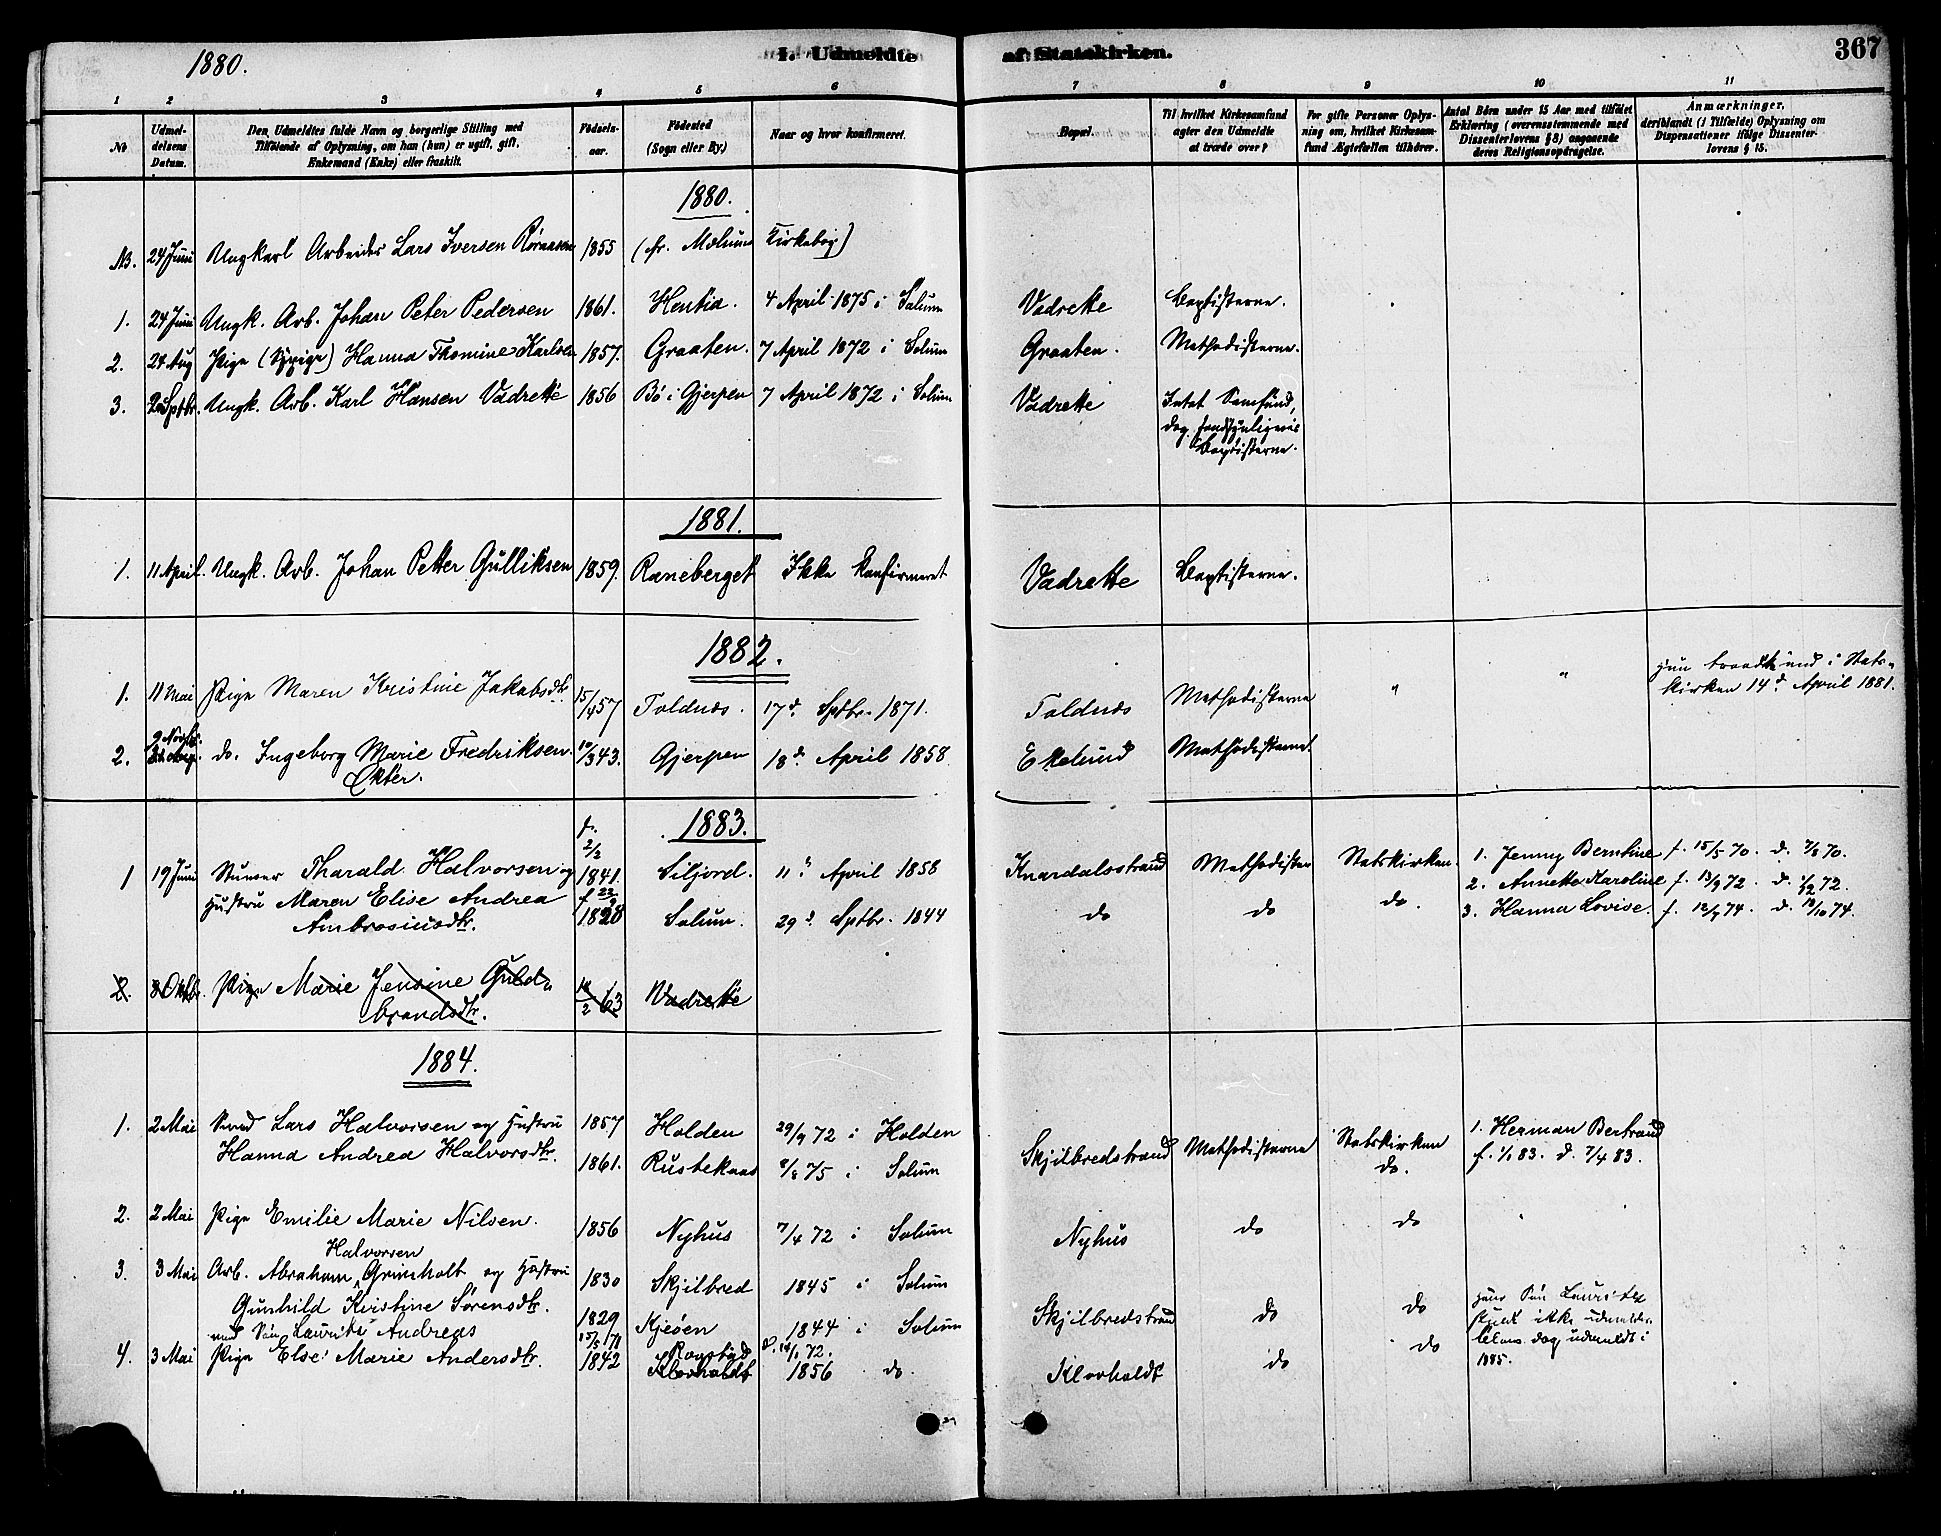 1880.
I. Udmeldte af Statskirken.
367
1 2 3 4 5 6 7 8 9 10 11
No
Udmel-
delsens
Datum.
Den Udmeldtes fulde Navn og borgerlige Stilling med
Tilføiende af Oplysning, om han (hun) er ugift, gift,
Enkemand (Enke) eller fraskilt.
Fødsels-
aar.
Fødested
(Sogn eller By.)
Naar og hvor konfirmeret.
Bopæl.
Til hvilket Kirkesamfund
agter den Udmeldte
at træde over?
For gifte Personer Oplys-
ning om, hvilket Kirkesam-
fund Ægtefællen tilhører.
Antal Børn under 15 Aar med tilføiet
Erklæring (overensstemmende med
Dissenterlovens § 8) angaaende
deres Religionsopdragelse.
Anmærkninger,
deriblandt (i Tilfælde) Oplysning om
Dispensationer ifølge Dissenter-
lovens § 15.
1880.
NB. 24 Juni Ungkarl Arbeider Lars Iversen Röraasen 1855 (fr. Melums Kirkebog)
1. 24 Juni Ungk. Arb. Johan Peter Pedersen 1861. 4 April 1875 i Solum Vadrette Baptisterne.
2. 24 Aug Pige (Sypige) Hanna Thomine Karlsen 1857. Graaten. 7 April 1872 i Solum Graaten. Methodisterne.
3. Sptbr. Ungk. Arb. Karl Hansen Vadrette 1856 Bö i Gjerpen 7 April 1872 i Solum Vadrette Intet Samfund,
dog sandsynligvis
Baptisterne.
1881.
1. 11 April. Ungk. Arb. Johan Petter Gulliksen 1859. Raneberget Ikke Konfirmeret Vadrette Baptisterne.
1882.
1. 11 Mai Pige Maren Kristine Jakobsdtr 15/4 57 Toldnæs. 17d. Sptbr. 1871. Toldnæs Methodisterne " " Hun traadt ind i Stats-
kirken 14d. April 1881.
2. 9 Novbr. do. Ingeborg Marie Fredriksen 10/3 43. Gjerpen 18d. April 1858 Ekelund Methodisterne.
Okter.
1883.
1 19 Juni Stuver Tharald Halvorsen og f. 2/2 1841. Siljord. 11d. April 1858 Knardalsstrand Methodister Statskirken. 1. Jenny Berntine f. 15/5 70. d. 7/8 70.
Hustru Maren Elise Andrea f 23/9 1828 Solum. 29d. Sptbr. 1844 do do do. 2. Annette Karoline f. 13/9 72. d. 1/12 72.
Ambrosiusdtr. 3. Hanna Lovise. f. 12/9 74. d. 18/10 74.
2. 8 Oktbr. Pige Marie Jensine Guld-
brandsdtr. 14/2 63 Vadrette
1884.
1. 2 Mai Smed Lars Halvorsen og Hustru 1857 Holden 29/9 72 i Holden Skjilbredstrand Methodisterne Statskirken 1. Herman Bertrand
Hanna Andrea Halvorsdtr. 1861. Rustekaas 8/8 75 i Solum do. f. 1/1 83. d. 7/4 83.
2. 2 Mai Pige Emilie Marie Nilsen. 1856 Nyhus 7/4 72 i Solum Nyhus do do "
Halvorsen
3. 3 Mai Arb. Abraham Grimholt og Hustru 1830 Skjilbred 1845 i Solum Skjilbredstrand do do
Gunhild Kristine Sörensdtr. 1829 Kjeöen 1844 i Solum
med Sön Laurits Andreas 15/5 71 Ravstöd d. 14/1 72.
Hans Sön Laurits
skal ikke udmeldes
dog udmeldt i
1885.
4. 3 Mai Pige Else Marie Andersdtr. 1842 Klovholdt 1856 do. Klovholdt do do